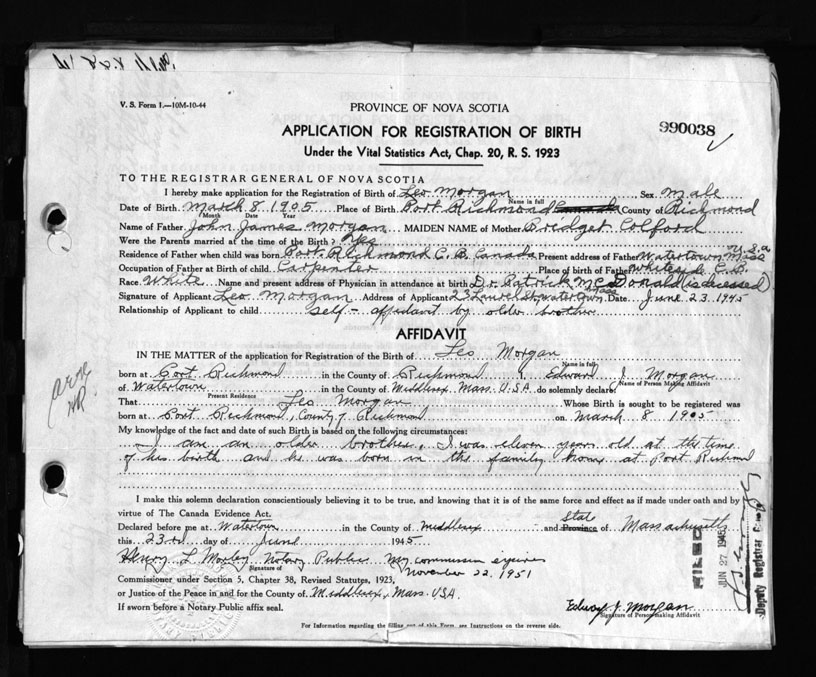 V. S. Form 1.—10M-10-44
PROVINCE OF NOVA SCOTIA
APPLICATION FOR REGISTRATION OF BIRTH
990038
Under the Vital Statistics Act, Chap. 20, R. S. 1923
TO THE REGISTRAR GENERAL OF NOVA SCOTIA
I hereby make application for the Registration of Birth of Leo Morgan Sex male
Name in full
Date of Birth March 8 1905 Place of Birth Port Richmond Canada County of Richmond
Month Date Year
Name of Father John James Morgan MAIDEN NAME of Mother Bridget Colford
Were the Parents married at the time of the Birth? Yes U.S.A
Residence of Father when child was born Port Richmond C. B. Canada Present address of Father Watertown Mass
Occupation of Father at Birth of child Carpenter Place of birth of Father Whiteside C.B.
Race White Name and present address of Physician in attendance at birth Dr. Patrick McDonald (is deceased)
Signature of Applicant Leo Morgan Address of Applicant 23 Laurel St. Watertown Mass Date June 23 1945
Relationship of Applicant to child self - affidavit by older brother
AFFIDAVIT
IN THE MATTER of the application for Registration of the Birth of Leo Morgan
Name in full
born at Port Richmond in the County of Richmond I Edward J Morgan
Name of Person Making Affidavit
of Watertown in the County of Middlesex Mass. USA do solemnly declare
Present Residence
That Leo Morgan Whose Birth is sought to be registered was
born at Port Richmond, County of Richmond on March 8 1905
My knowledge of the fact and date of such Birth is based on the following circumstances:
I am an older brother, I was eleven years old at the time
of his birth and he was born in the family home at Port Richmond
I make this solemn declaration conscientiously believing it to be true, and knowing that it is of the same force and effect as if made under oath and by
virtue of The Canada Evidence Act.
State
Declared before me at Watertown in the County of Middlesex and Province of Massachusetts
this 23rd day of June 1945
Henry L Morley Notary Public My commission expires
Signature of
November 22, 1951
Commissioner under Section 5, Chapter 38, Revised Statutes, 1923,
or Justice of the Peace in and for the County of Middlesex, Mass. USA.
If sworn before a Notary Public affix seal.
Edward J. Morgan
Signature of Person making Affidavit
For Information regarding the filling out of this Form, see Instructions on the reverse side.
FILED
JUN 27 1945
Deputy Registrar